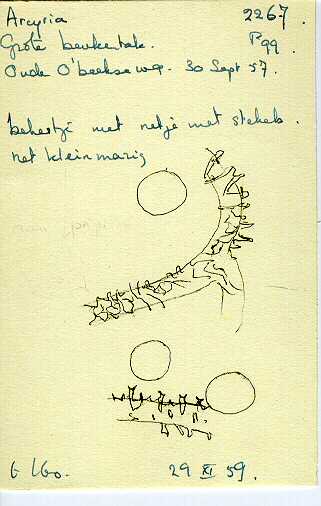 Arcyria 2267.
Grote beukentak. P99
Oude O'beekse weg. 30 Sept 57.
bekertje met netje met stekels.
net kleinmazig
29 XI 59.